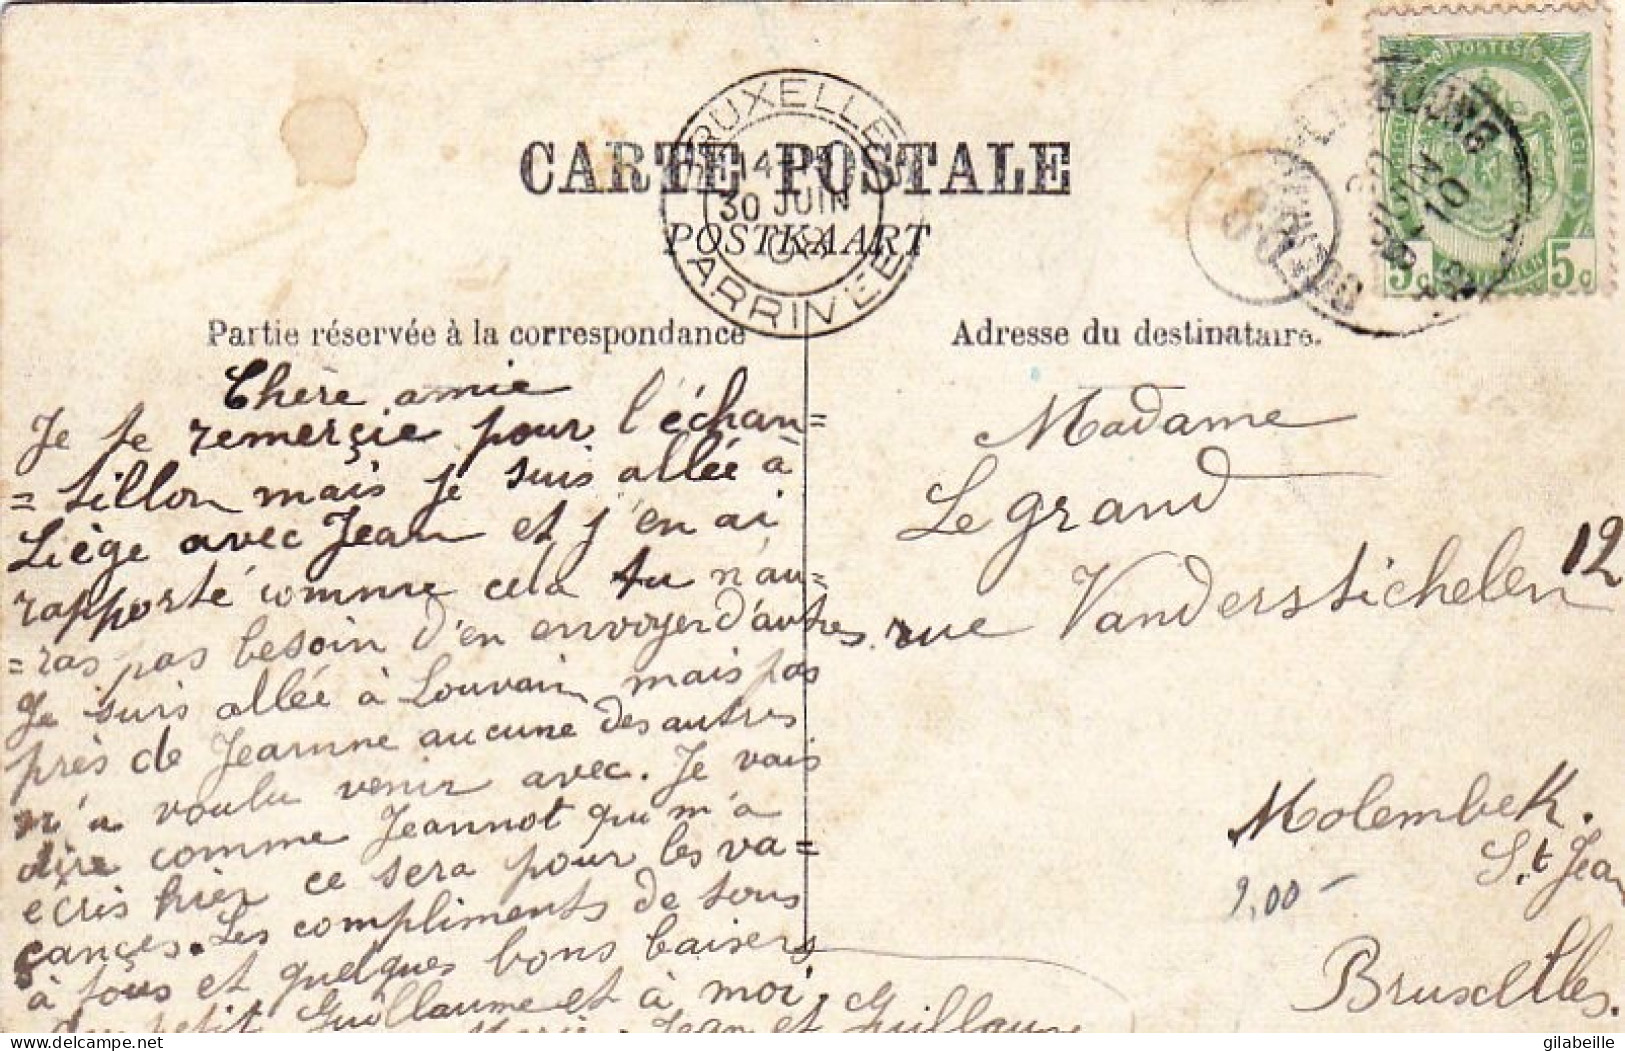 CARTE POSTALE
POSTKAART
BRUXELLES
14
30 JUIN
08
ARRIVÉE
POSTES
BELGIE
5c 5c
JUIN
10
Partie réservée à la correspondance
Adresse du destinataire.
Chère amie
Je te remerçie pour l'échan=
=tillon mais je suis allée à
Liège avec Jean et j'en ai
rapporté comme cela tu n'au=
=ras pas besoin d'en envoyer d'autres.
Je suis allée à Louvain mais pas
près de Jeannne aucune des autres
n'a voulu venir avec. Je vais
dire comme Jeannot qui m'a
écris hier ce sera pour les va=
çances. Les compliments de tous
à tous et quelques bons baisers
du petit Guillaume et à moi,
Marie, Jean et Guillaume
Madame
Legrand
rue Vanderstichelen 12
Molembeek.
St Jean
Bruxelles.
2,00 -
gilabeille